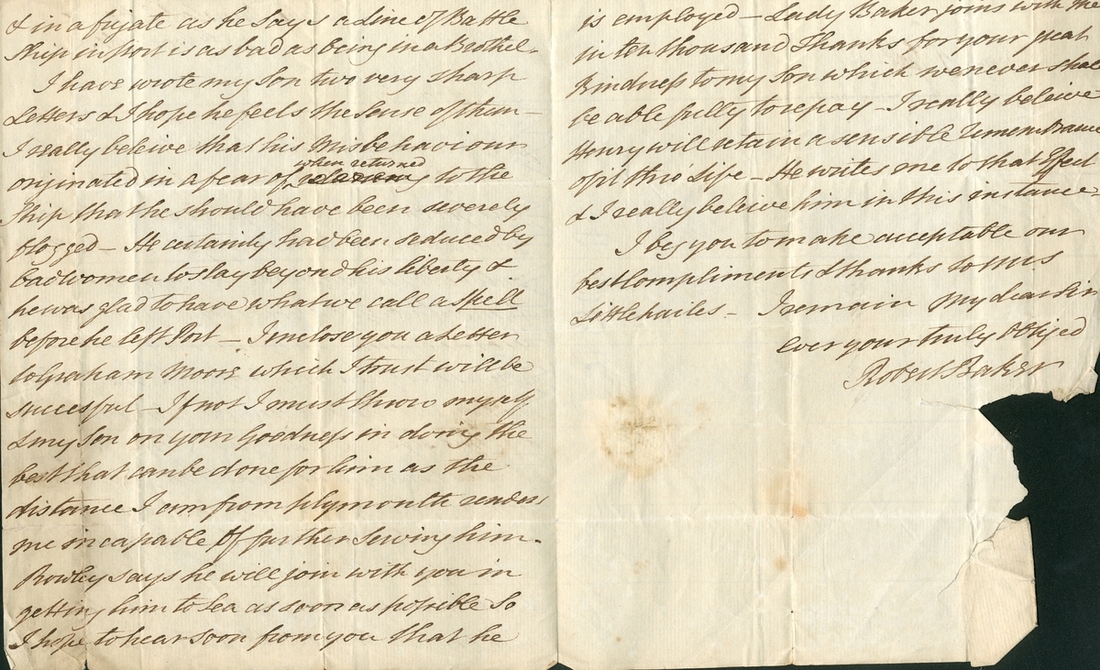 & in a frigate as he says a Line of Battle
Ship in Port is as bad as being in a Brothel.
I have wrote my Son two very sharp
Letters & I hope he feels the Sense of them –
I really beleive that his Misbehaviour
when returned
originated in a fear of to the
Ship that he should have been severely
flogged – He certainly had been seduced by
bad women to stay beyond his liberty &
he was glad to have what we call a Spell
before he left Port – I inclose you a Letter
to Graham Moore which I trust will be
succesful – If not I must throw myself
& my Son on your Goodness in doing the
best that can be done for him as the
distance I am from plymouth renders
me incapable Of further Serving him –
Rowley says he will join with you in
getting him to Sea as soon as possible So
I hope to hear soon from you that he
is employed – Lady Baker joins with me
in ten thousand Thanks for your great
Kindness to my Son which we never shall
be able fully to repay – I really beleive
Henry will retain a sensible Remembrance
of it thro' Life – He writes me to that Effect
& I really beleive him in this instance –
I beg you to make acceptable our
best Compliments & thanks to Mrs
Littlehailes – I remain My dear Sir
ever your truly Obliged
Robert Baker